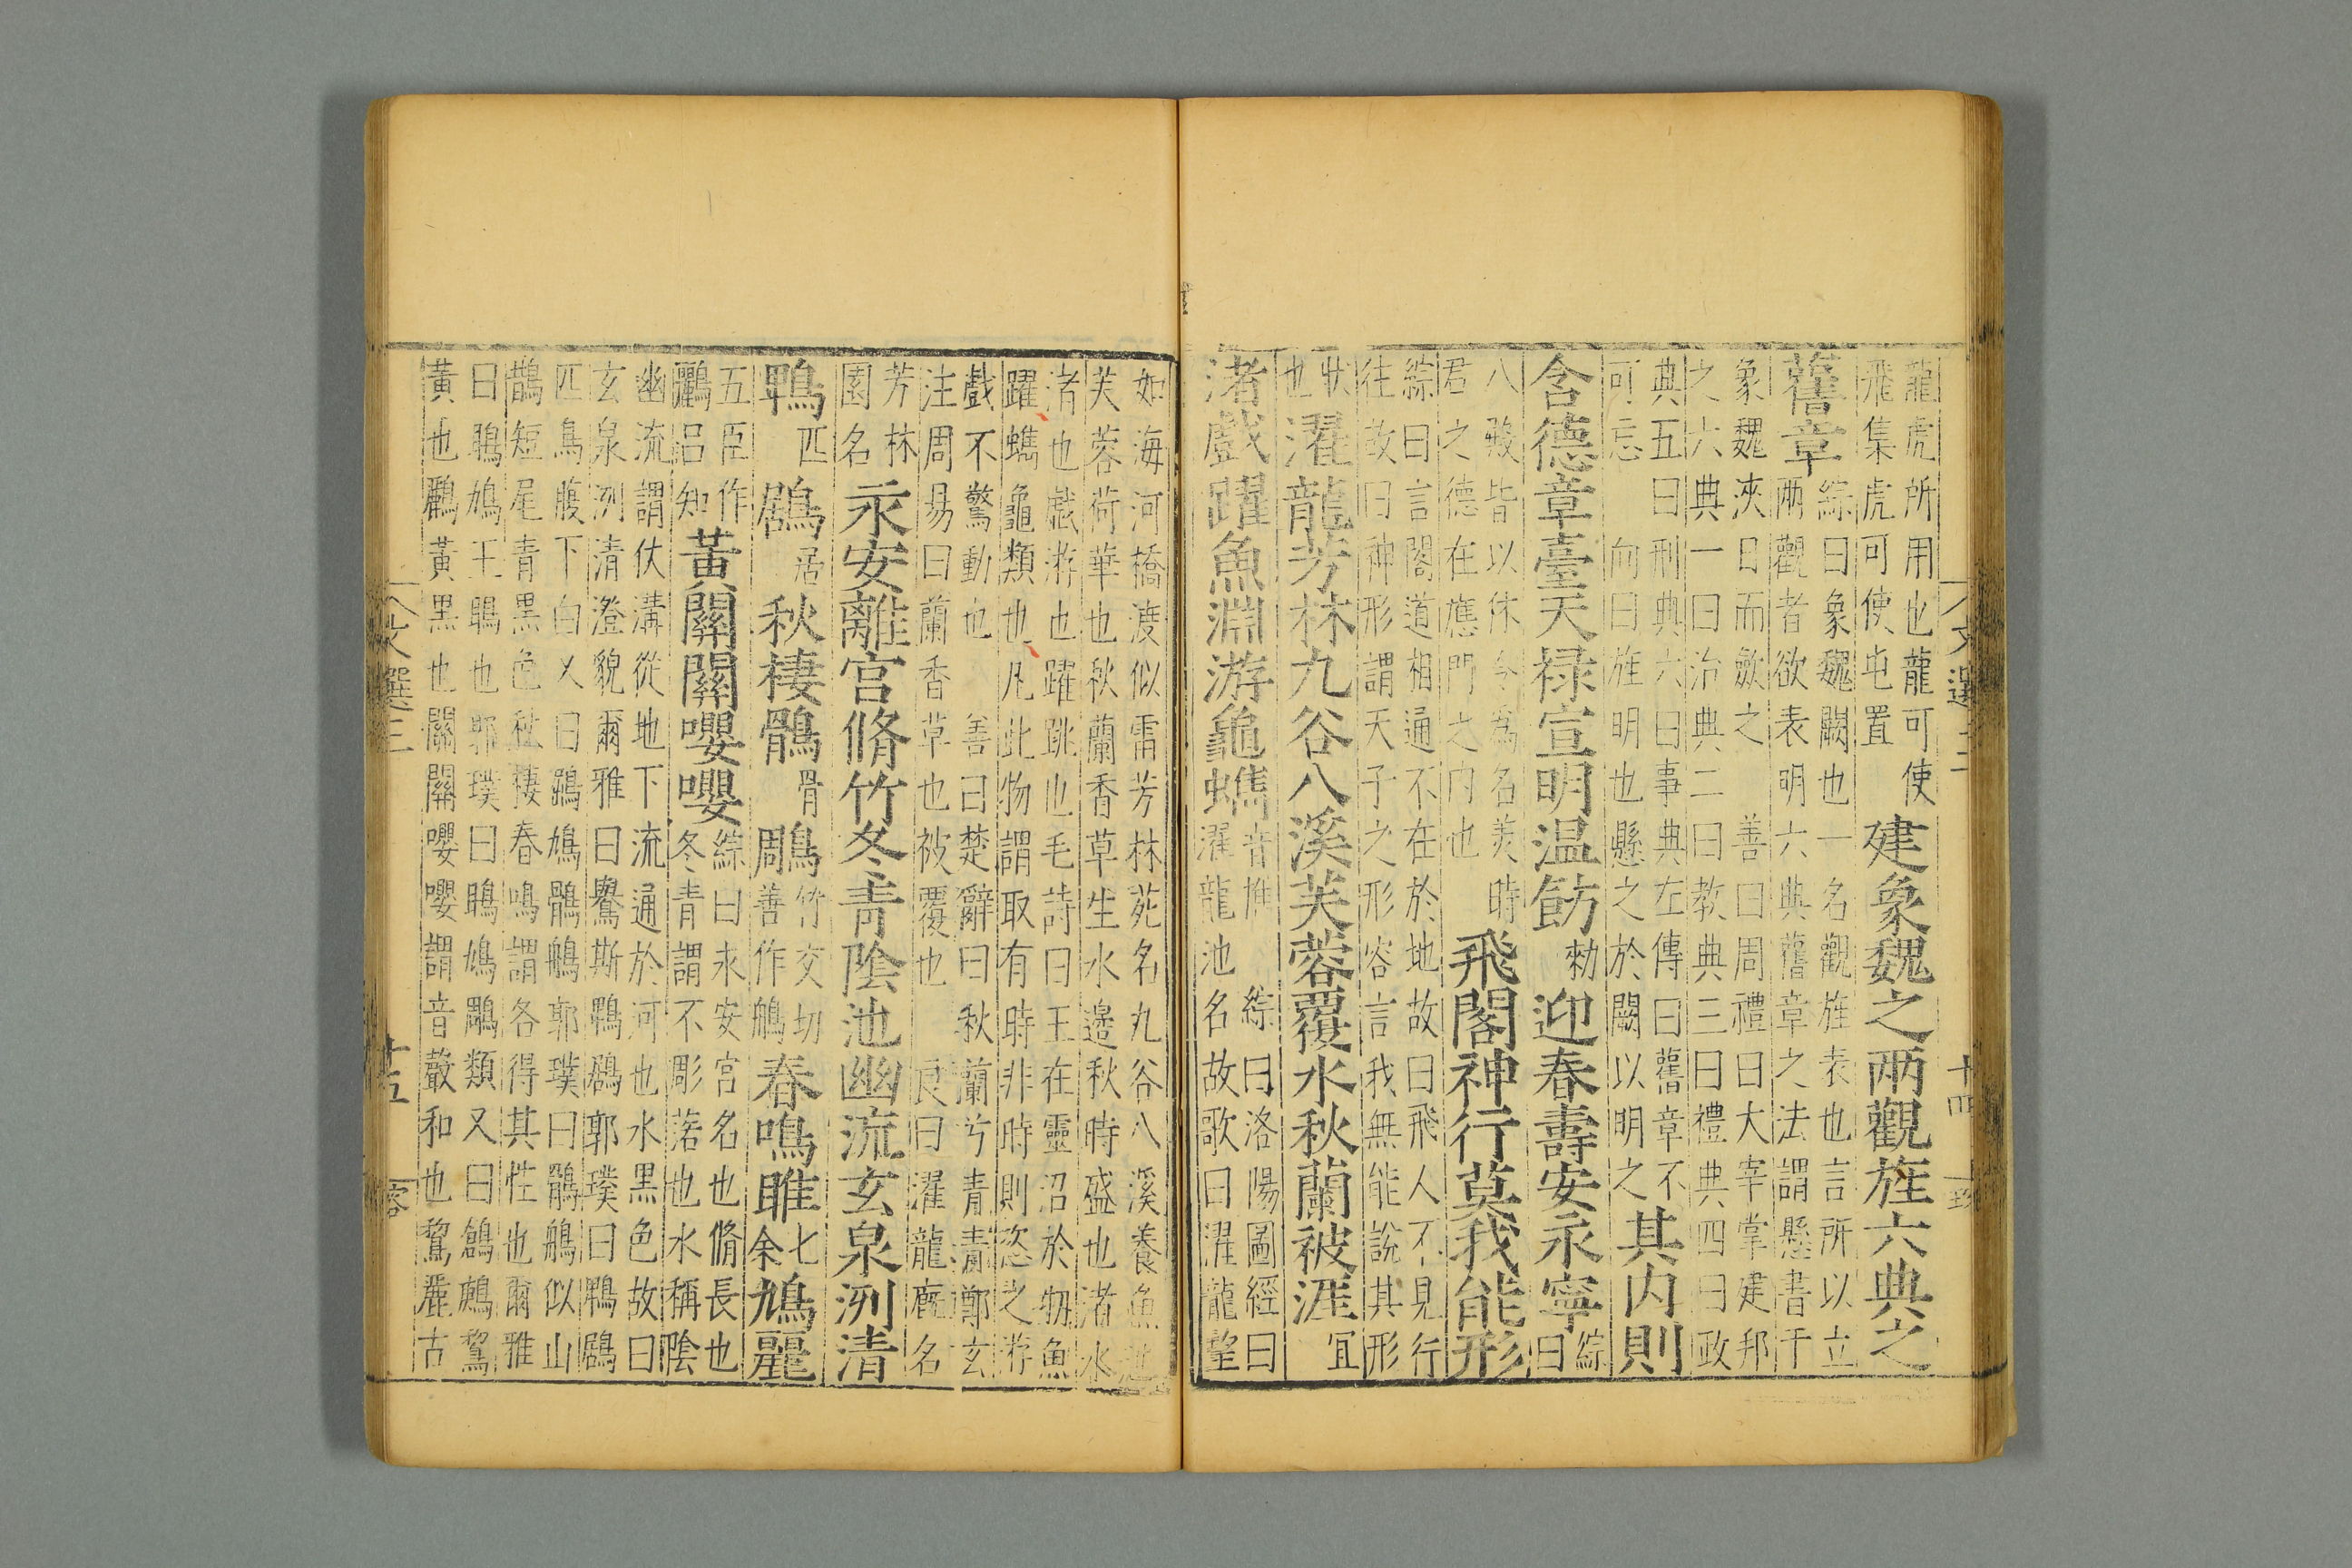 龍虎所用也龍可使
飛集虎可使屯置
建象魏之兩觀旌六典之
舊章
綜曰象魏闕也一名觀旌表也言所以立
兩觀者欲表明六典舊章之法謂懸書于
象魏浹日而斂之 善曰周禮曰大宰掌建邦
之六典一曰治典二曰教典三曰禮典四曰政
典五曰刑典六曰事典左傳曰舊章不
可忘 向曰旌明也懸之於闕以明之
其内則
含德章臺天禄宣明温飭
勑
迎春壽安永寧
綜
曰
八殿皆以休令為名美時
君之德在應門之内也
飛閣神行莫我能形
綜曰言閣道相通不在於地故曰飛人不見行
往故曰神形謂天子之形容言我無能說其形
狀
也
濯龍芳林九谷八溪芙蓉覆水秋蘭被涯
宜
渚戲躍魚淵游龜蠵
音惟 綜曰洛陽圖經曰
濯龍池名故歌曰濯龍望
如海河橋渡似雷芳林苑名九谷八溪養魚池
芙蓉荷華也秋蘭香草生水邊秋時盛也渚水
渚也戲游也躍跳也毛詩曰王在靈沼於牣魚
躍蠵龜類也凡此物謂取有時非時則恣之游
戲不驚動也 善曰楚辭曰秋蘭兮青青鄭玄
注周易曰蘭香草也被覆也 良曰濯龍廐名
芳林
園名
永安離宫脩竹冬青陰池幽流玄泉洌清
鵯
匹
鶋
居
秋棲鶻
骨
鵃
竹交切
善作鵃
春鳴雎
七
余
鳩麗
五臣作
鸝呂知
黄關關嚶嚶
綜曰永安宫名也脩長也
冬青謂不彫落也水稱陰
幽流謂伏溝從地下流通於河也水黑色故曰
玄泉洌清澄貌爾雅曰鸒斯鵯鶋郭璞曰鵯鶋
匹鳥腹下白又曰鶌鳩鶻鵃郭璞曰鶻鵃似山
鵲短尾青黑色秋棲春鳴謂各得其性也爾雅
曰鵙鳩王鵙也郭璞曰鵙鳩鵰類又曰鶬鶊鵹
黄也鸝黄黑也關關嚶嚶謂音聲和也鵹麗古
文選三 十四
文選三 十五